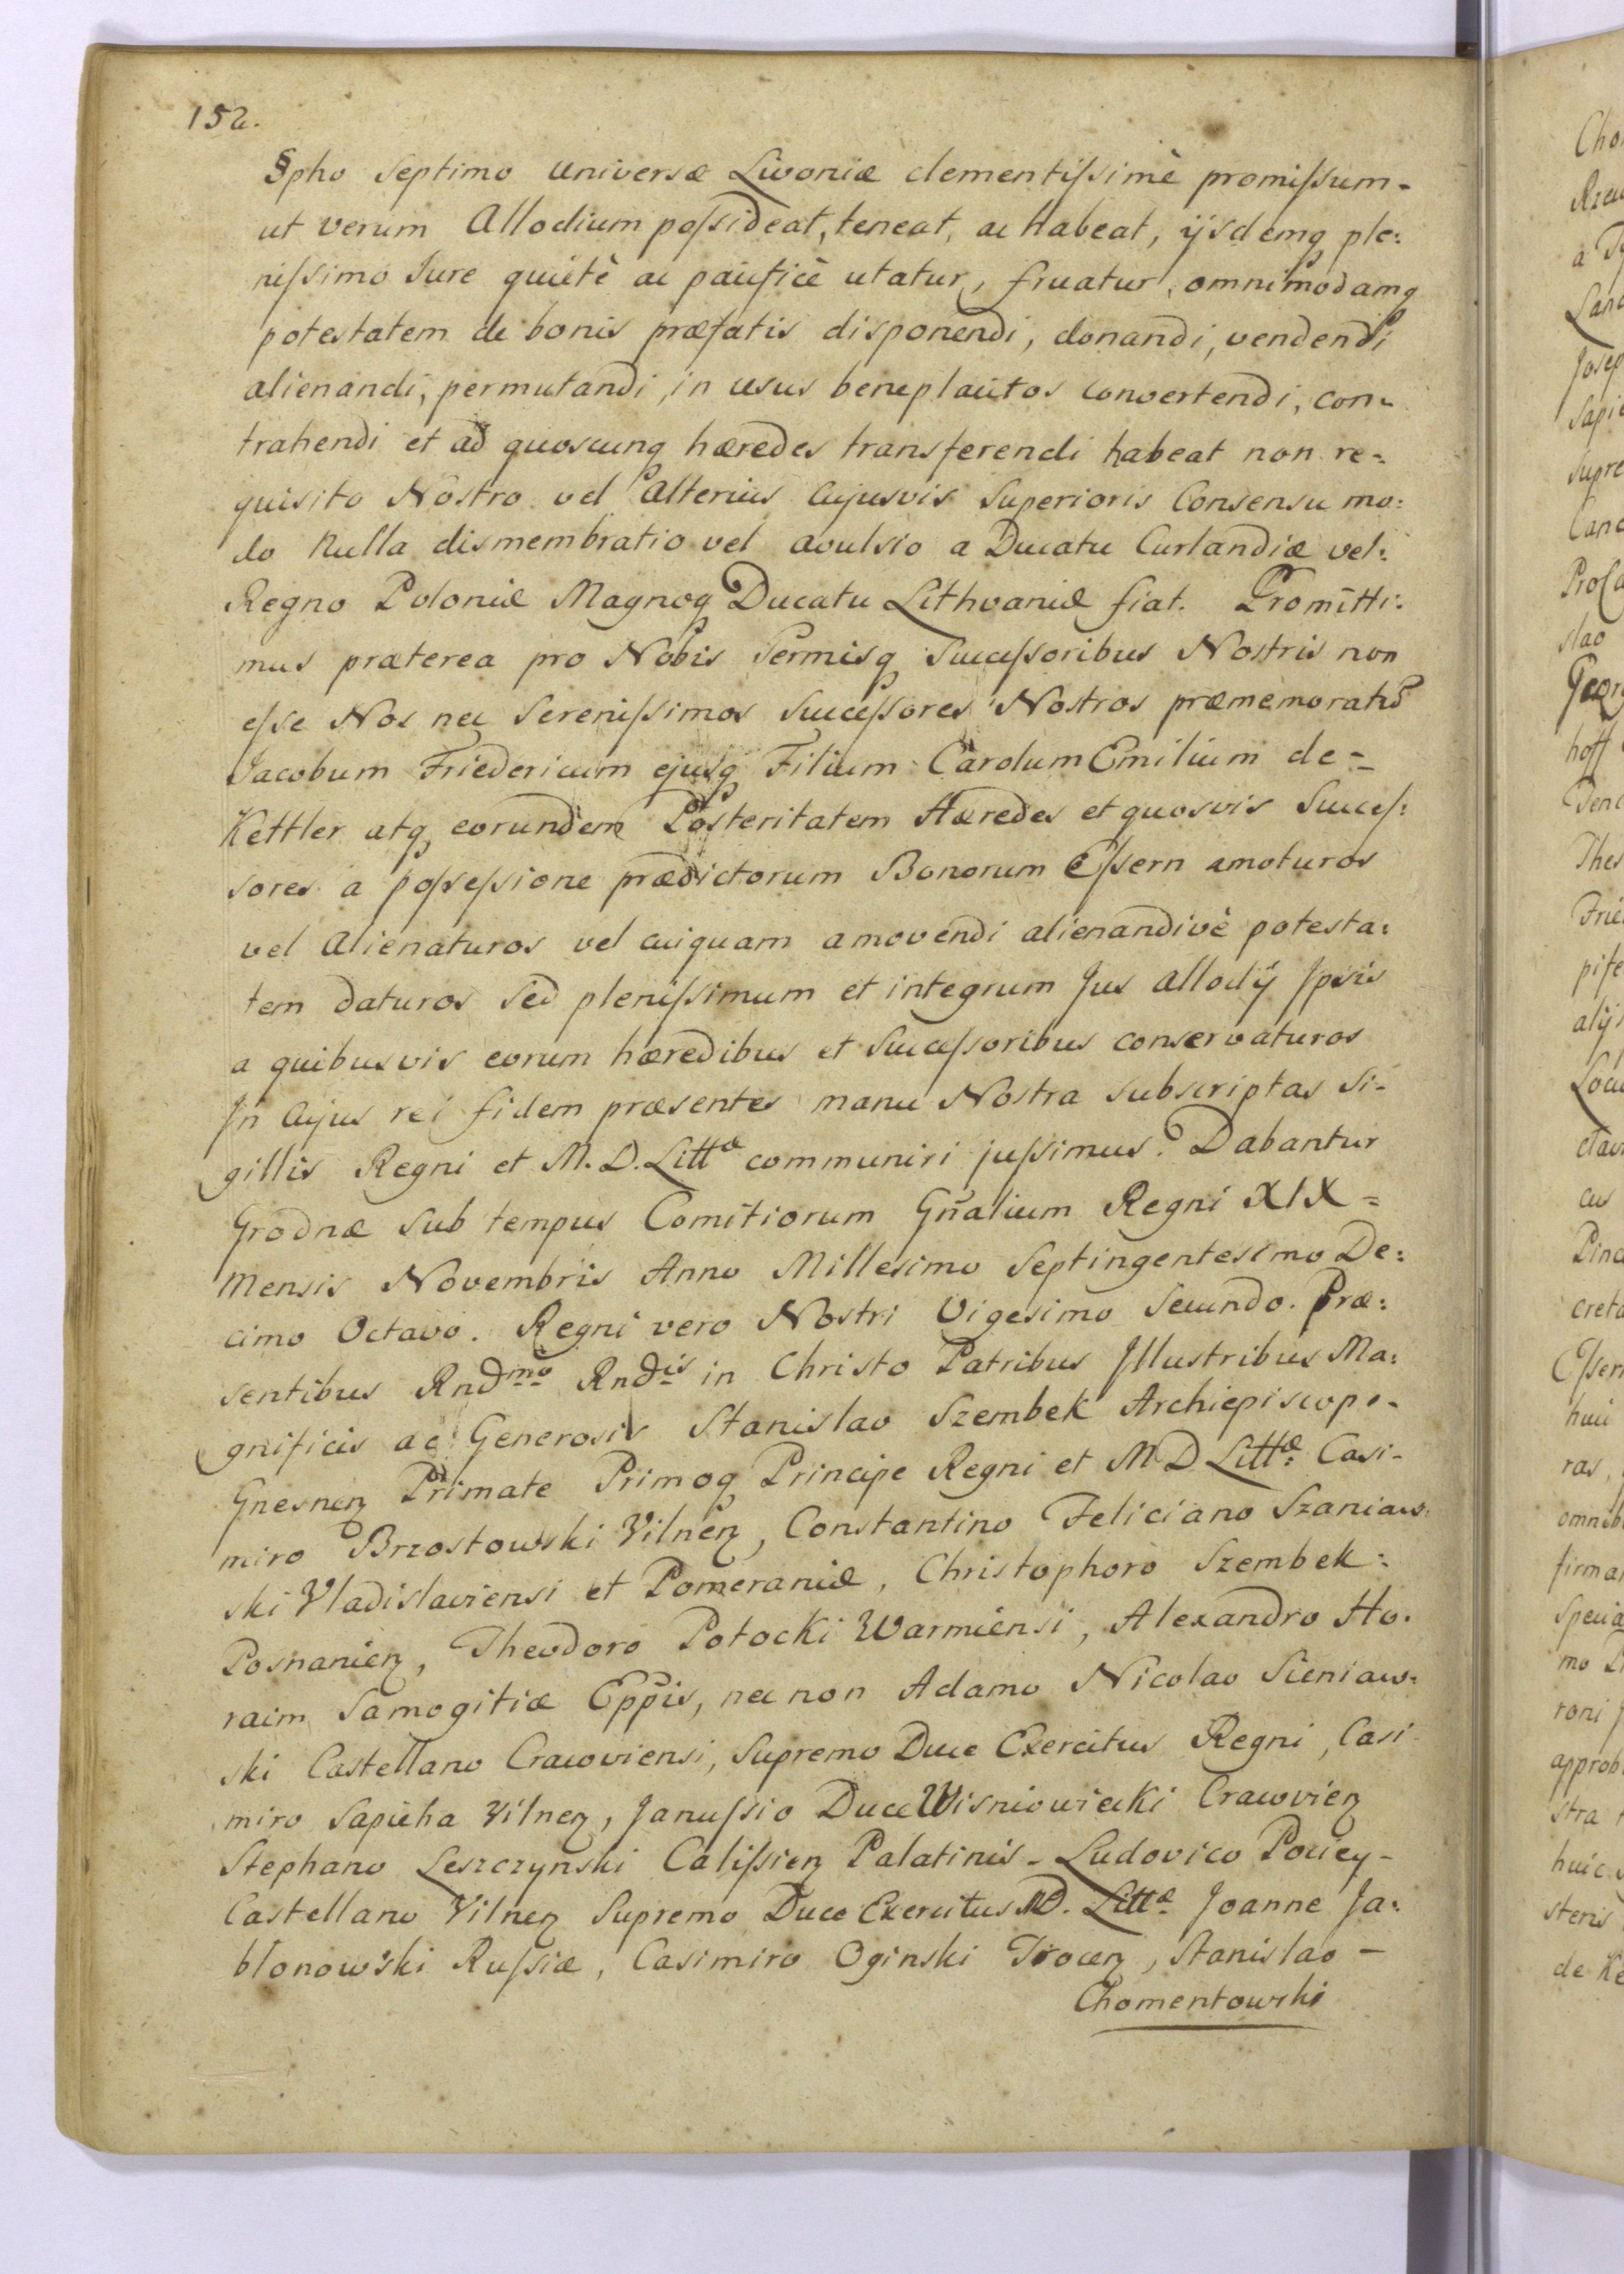 152.
§pho Septimo Universæ Livoniæ clementiſsimè promiſsum-
ut verum Allodium poſsideat, teneat, ac habeat, ijsdemq ple:
niſsimo Jure quietè ac pacificè utatur, fruatur, omnimodamq
potestatem de bonis præfatis disponendi, donandi, vendendi
alienandi, permutandi, in usus beneplacitos convertendi, con-
trahendi et ad quoscunq hæredes transferendi habeat non re-
quisito Nostro vel Alterius Cujusvis Superioris Consensu mo:
do Nulla dismembratio vel avulsio a Ducatu Curlandiæ vel:
Regno Poloniæ Magnoq Ducatu Lithvaniæ fiat. Promitti:
mus præterea pro Nobis Sermisq Succeſsoribus Nostris non
eſse Nos nec Sereniſsimos Succeſsores Nostros præmemoratũ
Jacobum Friedericum ejusq Filium Carolum Emilium de-
Kettler atq eorundem Posteritatem Hæredes et quosvis Succeſ:
sores a poſseſsione prædictorum Bonorum Eſsern amoturos
vel Alienaturos vel cuiquam amovendi alienandivè potesta:
tem daturos Sed pleniſsimum et integrum Jus Allodij Ipsis
a quibusvis eorum hæredibus et Succeſsoribus conservaturos
In Cujus rei fidem præsentes manu Nostra Subscriptas Si-
gillis Regni et M. D. Littæ communiri juſsimus. Dabantur
Grodnæ Sub tempus Comitiorum Gñalium Regni XIX =
Mensis Novembris Anno Millesimo Septingentesimo De:
cimo Octavo. Regni vero Nostri Vigesimo Secundo. Præ:
sentibus Rndmo Rndis in Christo Patribus Illustribus Ma:
gnificis ac Generosis Stanislao Szembek Archiepiscopo-
Gnesnen Primate Primoq Principe Regni et M D Littæ Casi-
miro Brzostowski Vilnen, Constantino Feliciano Szaniaw:
ski Vladislaviensi et Pomeraniæ, Christophoro Szembek:
Posnanien, Theodoro Potocki Warmiensi, Alexandro Ho.
raim Samogitiæ Eppis, nec non Adamo Nicolao Sieniaw:
ski Castellano Cracoviensi, Supremo Duce Exercitus Regni, Casi-
miro Sapieha Vilnen, Januſsio Duce Wisniowiecki Cracovien
Stephano Leszczynski Caliſsien Palatinis - Ludovico Pociey-
Castellano Vilnen Supremo Duce Exercitus MD. Littæ Joanne Ja:
blonowski Ruſsiæ, Casimiro Oginski Trocen, Stanislao -
Chomentowski